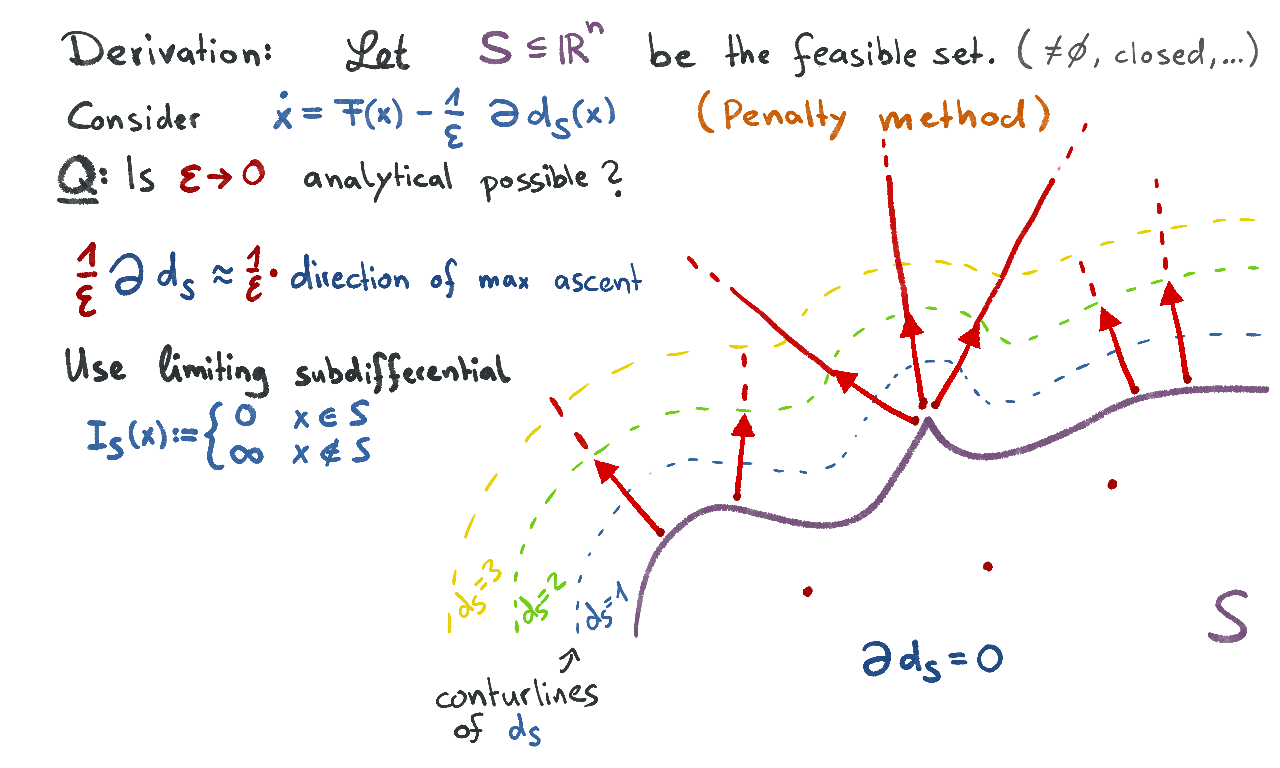 Derivation: Let S ⊆ ℝⁿ be the feasible set. (≠∅, closed,...)
Consider ẋ = F(x) - 1/ε ∂ds(x) (Penalty method)
Q: Is ε → 0 analytical possible?
1/ε ∂ ds ≈ 1/ε · direction of max ascent
Use limiting subdifferential
Is(x) := { 0 x ∈ S
∞ x ∉ S
ds=3
ds=2
ds=1
S
∂ ds = 0
conturlines
of ds